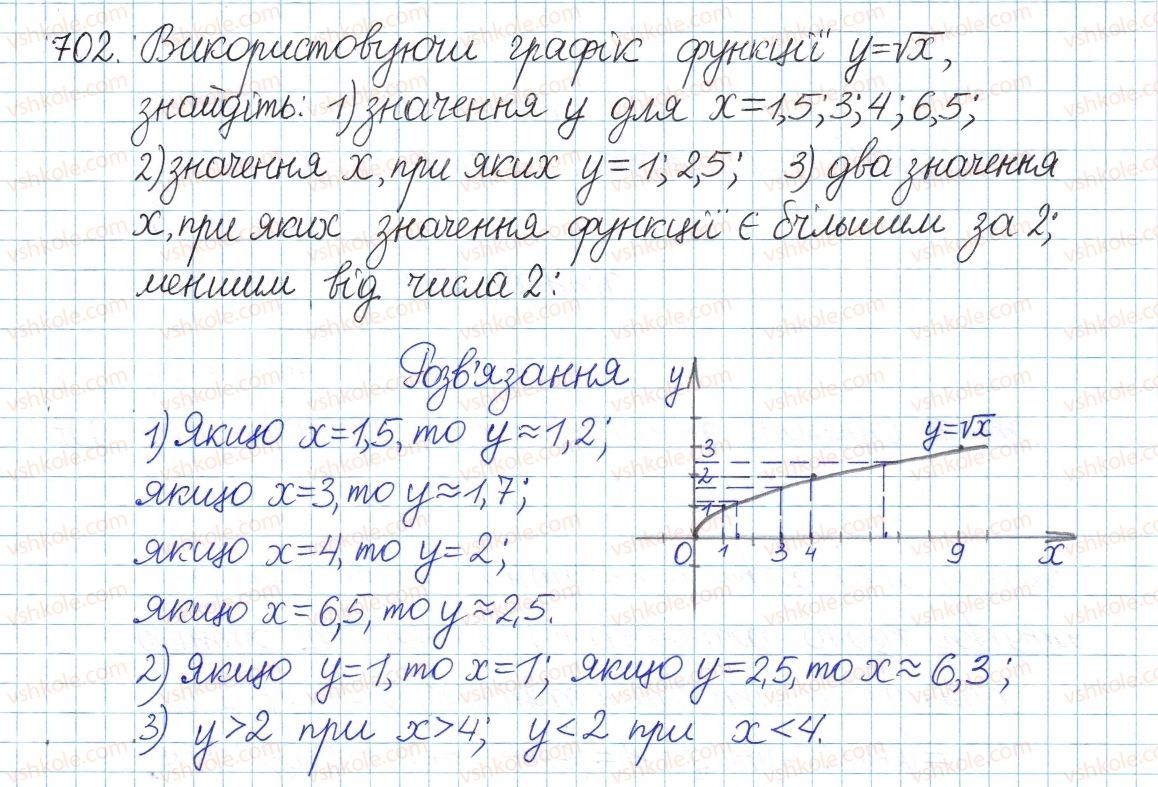 702. Використовуючи графік функції y=√x,
знайдіть: 1) значення y для x=1,5; 3; 4; 6,5;
2) значення x, при яких y=1; 2,5; 3) два значення
x, при яких значення функції є більшим за 2;
меншим від числа 2:
Розв'язання
1) Якщо x=1,5, то y≈1,2;
якщо x=3, то y≈1,7;
якщо x=4, то y=2;
якщо x=6,5, то y≈2,5.
2) Якщо y=1, то x=1; якщо y=2,5, то x≈6,3;
3) y>2 при x>4; y<2 при x<4.
y
y=√x
3
2
1
0 1 3 4 9 x
vshkole.com